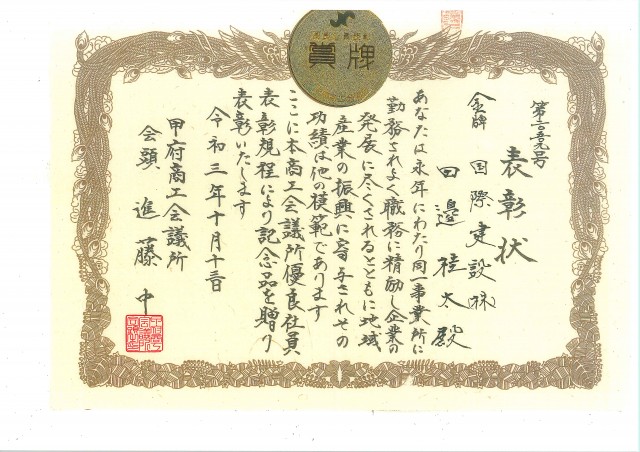 賞牌
表彰状
金牌 国際建設㈱
田邊桂太殿
あなたは永年にわたり同一事業所に
勤務されよく職務に精励し企業の
発展に尽くされるとともに地域
産業の振興に寄与されその
功績は他の模範であります
ここに本商工会議所優良社員
表彰規程により記念品を贈り
表彰いたします
令和三年十月十三日
甲府商工会議所
会頭 進藤中